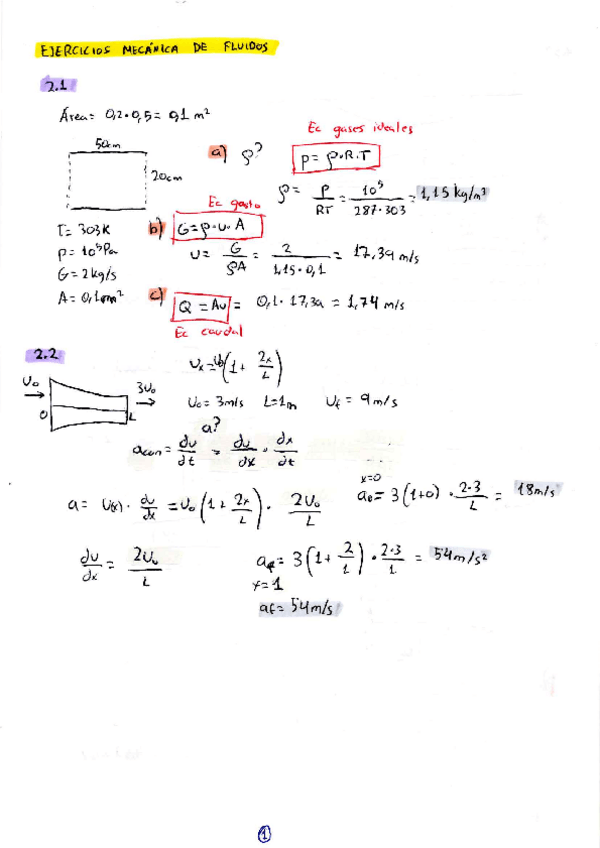 EJERCICIOS MECÁNICA DE FLUIDOS
2.1
Área = 0,2·0,5 = 0,1 m²
50cm
20cm
a) ρ?
Ec gases ideales
p = ρ·R·T
ρ = P/RT = 10⁵/287·303 = 1,15 kg/m³
T = 303K
P = 10⁵Pa
G = 2kg/s
A = 0,1m²
Ec gasto
b) G = ρ·u·A
u = G/ρA = 2/1,15·0,1 = 17,39 m/s
c) Q = Au = 0,1·17,39 = 1,74 m/s
Ec caudal
2.2
U₀
3U₀
0
L
Ux = U₀(1 + 2x/L)
U₀ = 3m/s L = 1m Uf = 9m/s
a?
acon = du/dt = du/dx · dx/dt
a = U(x) · du/dx = U₀(1 + 2x/L) · 2U₀/L
x=0
a₀ = 3(1+0) · 2·3/L = 18m/s
du/dx = 2U₀/L
af = 3(1 + 2/1) · 2·3/1 = 54m/s²
x = 1
af = 54m/s
1